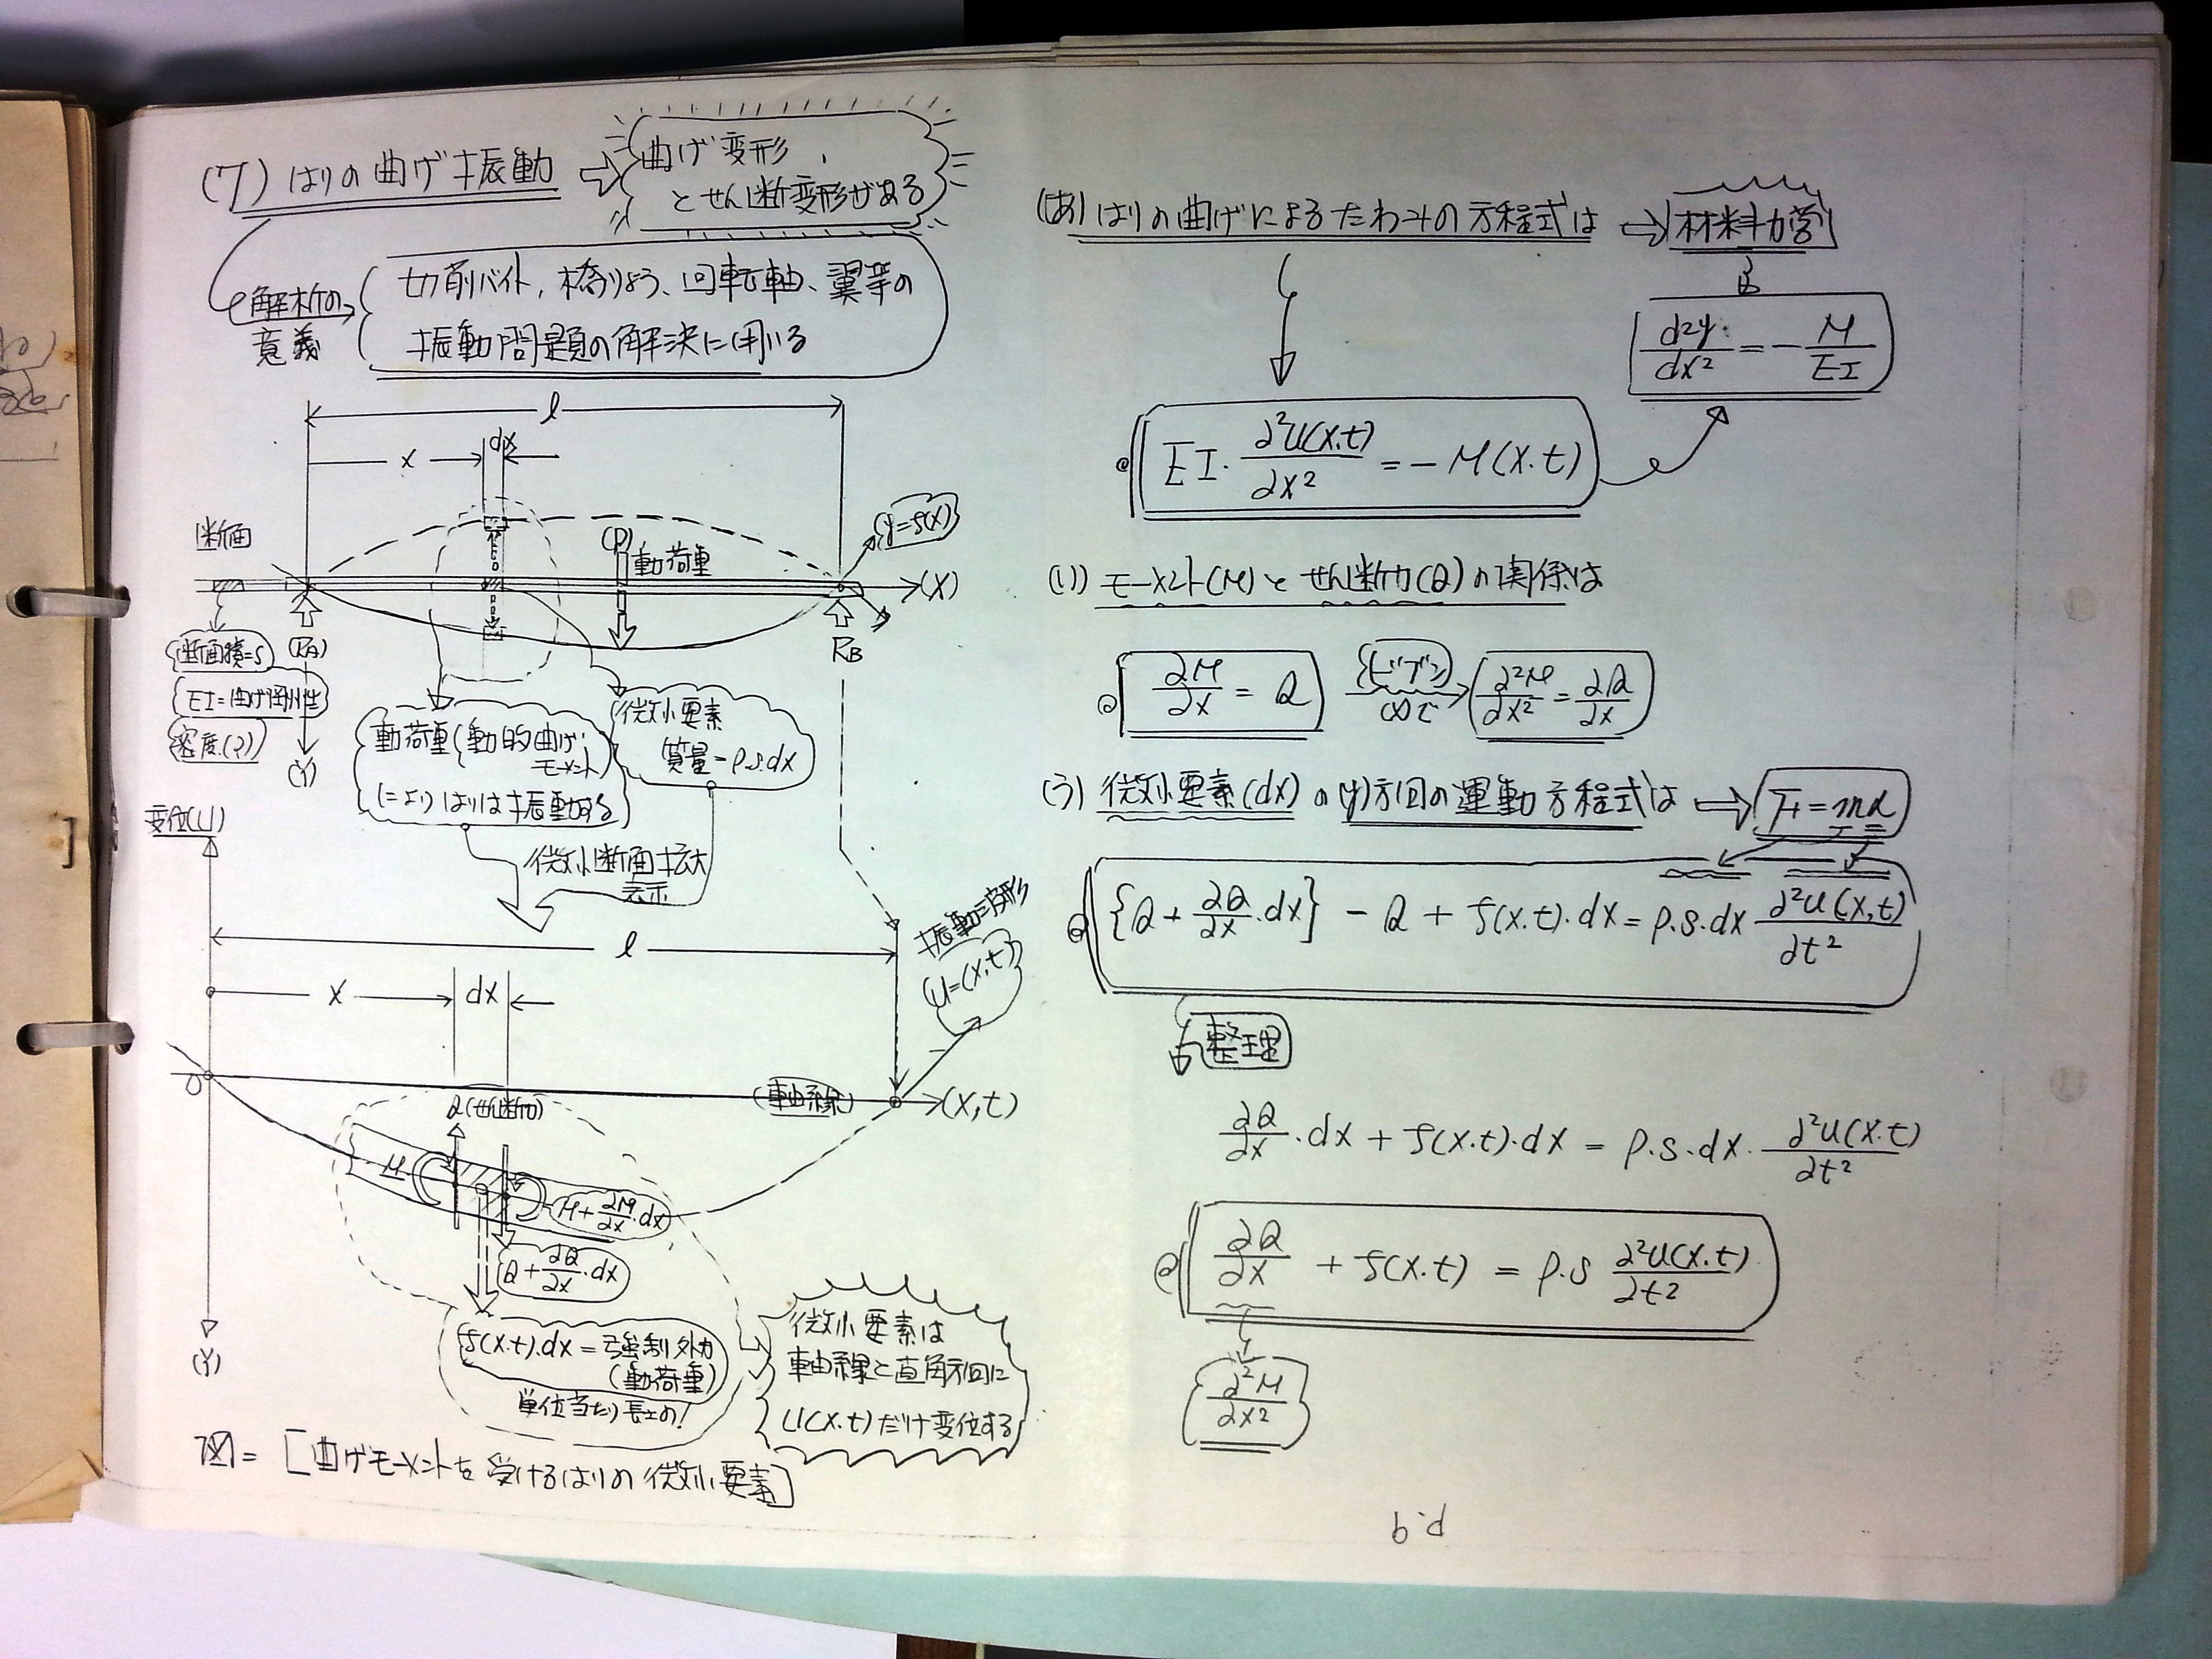 (7) はりの曲げ振動
曲げ変形
とせん断変形がある
解析の
意義
切削バイト, 橋りょう、回転軸、翼等の
振動問題の解決に用いる
l
x
dx
断面
(P)
動荷重
y=f(x)
(X)
断面積=S
(RA)
RB
EI=曲げ剛性
密度(ρ)
(Y)
動荷重(動的曲げ
モーメント)
によりはりは振動する
微小要素
質量=ρ.s.dx
微小断面拡大
表示
変位(U)
l
x
dx
振動波形
U=(x,t)
O
軸線
(x,t)
Q(せん断力)
M
M+∂M/∂x・dx
Q+∂Q/∂x・dx
f(x.t).dx=強制外力
(動荷重)
単位当たり長さの!
微小要素は
軸線と直角方向に
U(x.t)だけ変位する
図=[曲げモーメントを受けるはりの微小要素]
(あ) はりの曲げによるたわみの方程式は
材料力学
d2y/dx2=-M/EI
EI・∂²U(x.t)/∂x²=-M(x.t)
(い) モーメント(M)とせん断力(Q)の関係は
∂M/∂x=Q
ビブン
(x)で
∂²M/∂x²=∂Q/∂x
(う) 微小要素(dx)の(y)方向の運動方程式は
F=mα
{Q+∂Q/∂x・dx}-Q+f(x.t)・dx=ρ.s.dx ∂²U(x,t)/∂t²
整理
∂Q/∂x・dx+f(x.t)・dx=ρ.s.dx・∂²U(x.t)/∂t²
∂Q/∂x+f(x.t)=ρ.s ∂²U(x.t)/∂t²
∂²M/∂x²
P.9